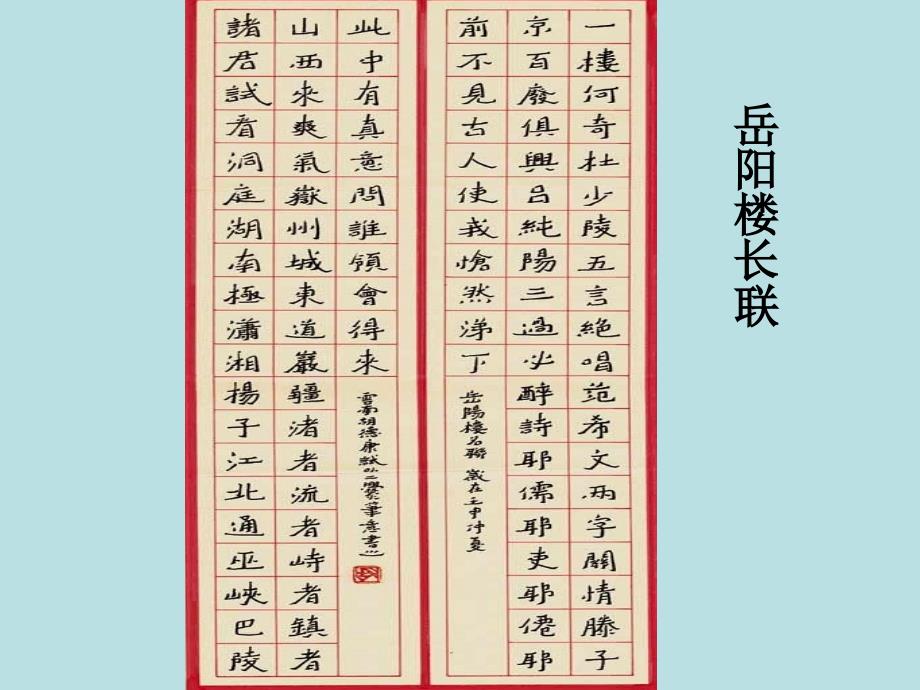 岳阳楼长联
一樓何奇杜少陵五言絕唱范希文兩字關情滕子
京百廢俱興呂純陽三過必醉詩耶儒耶吏耶僊耶
前不見古人使我愴然涕下
岳陽樓名聯 歲在壬申仲夏
諸君試看洞庭湖南極瀟湘揚子江北通巫峽巴陵
山西來爽氣嶽州城東道巖疆渚者流者峙者鎮者
此中有真意問誰領會得來
雲南胡德康試以二爨筆意書